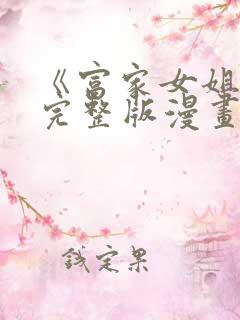 《富家女姐
完整版漫畫
錢定果